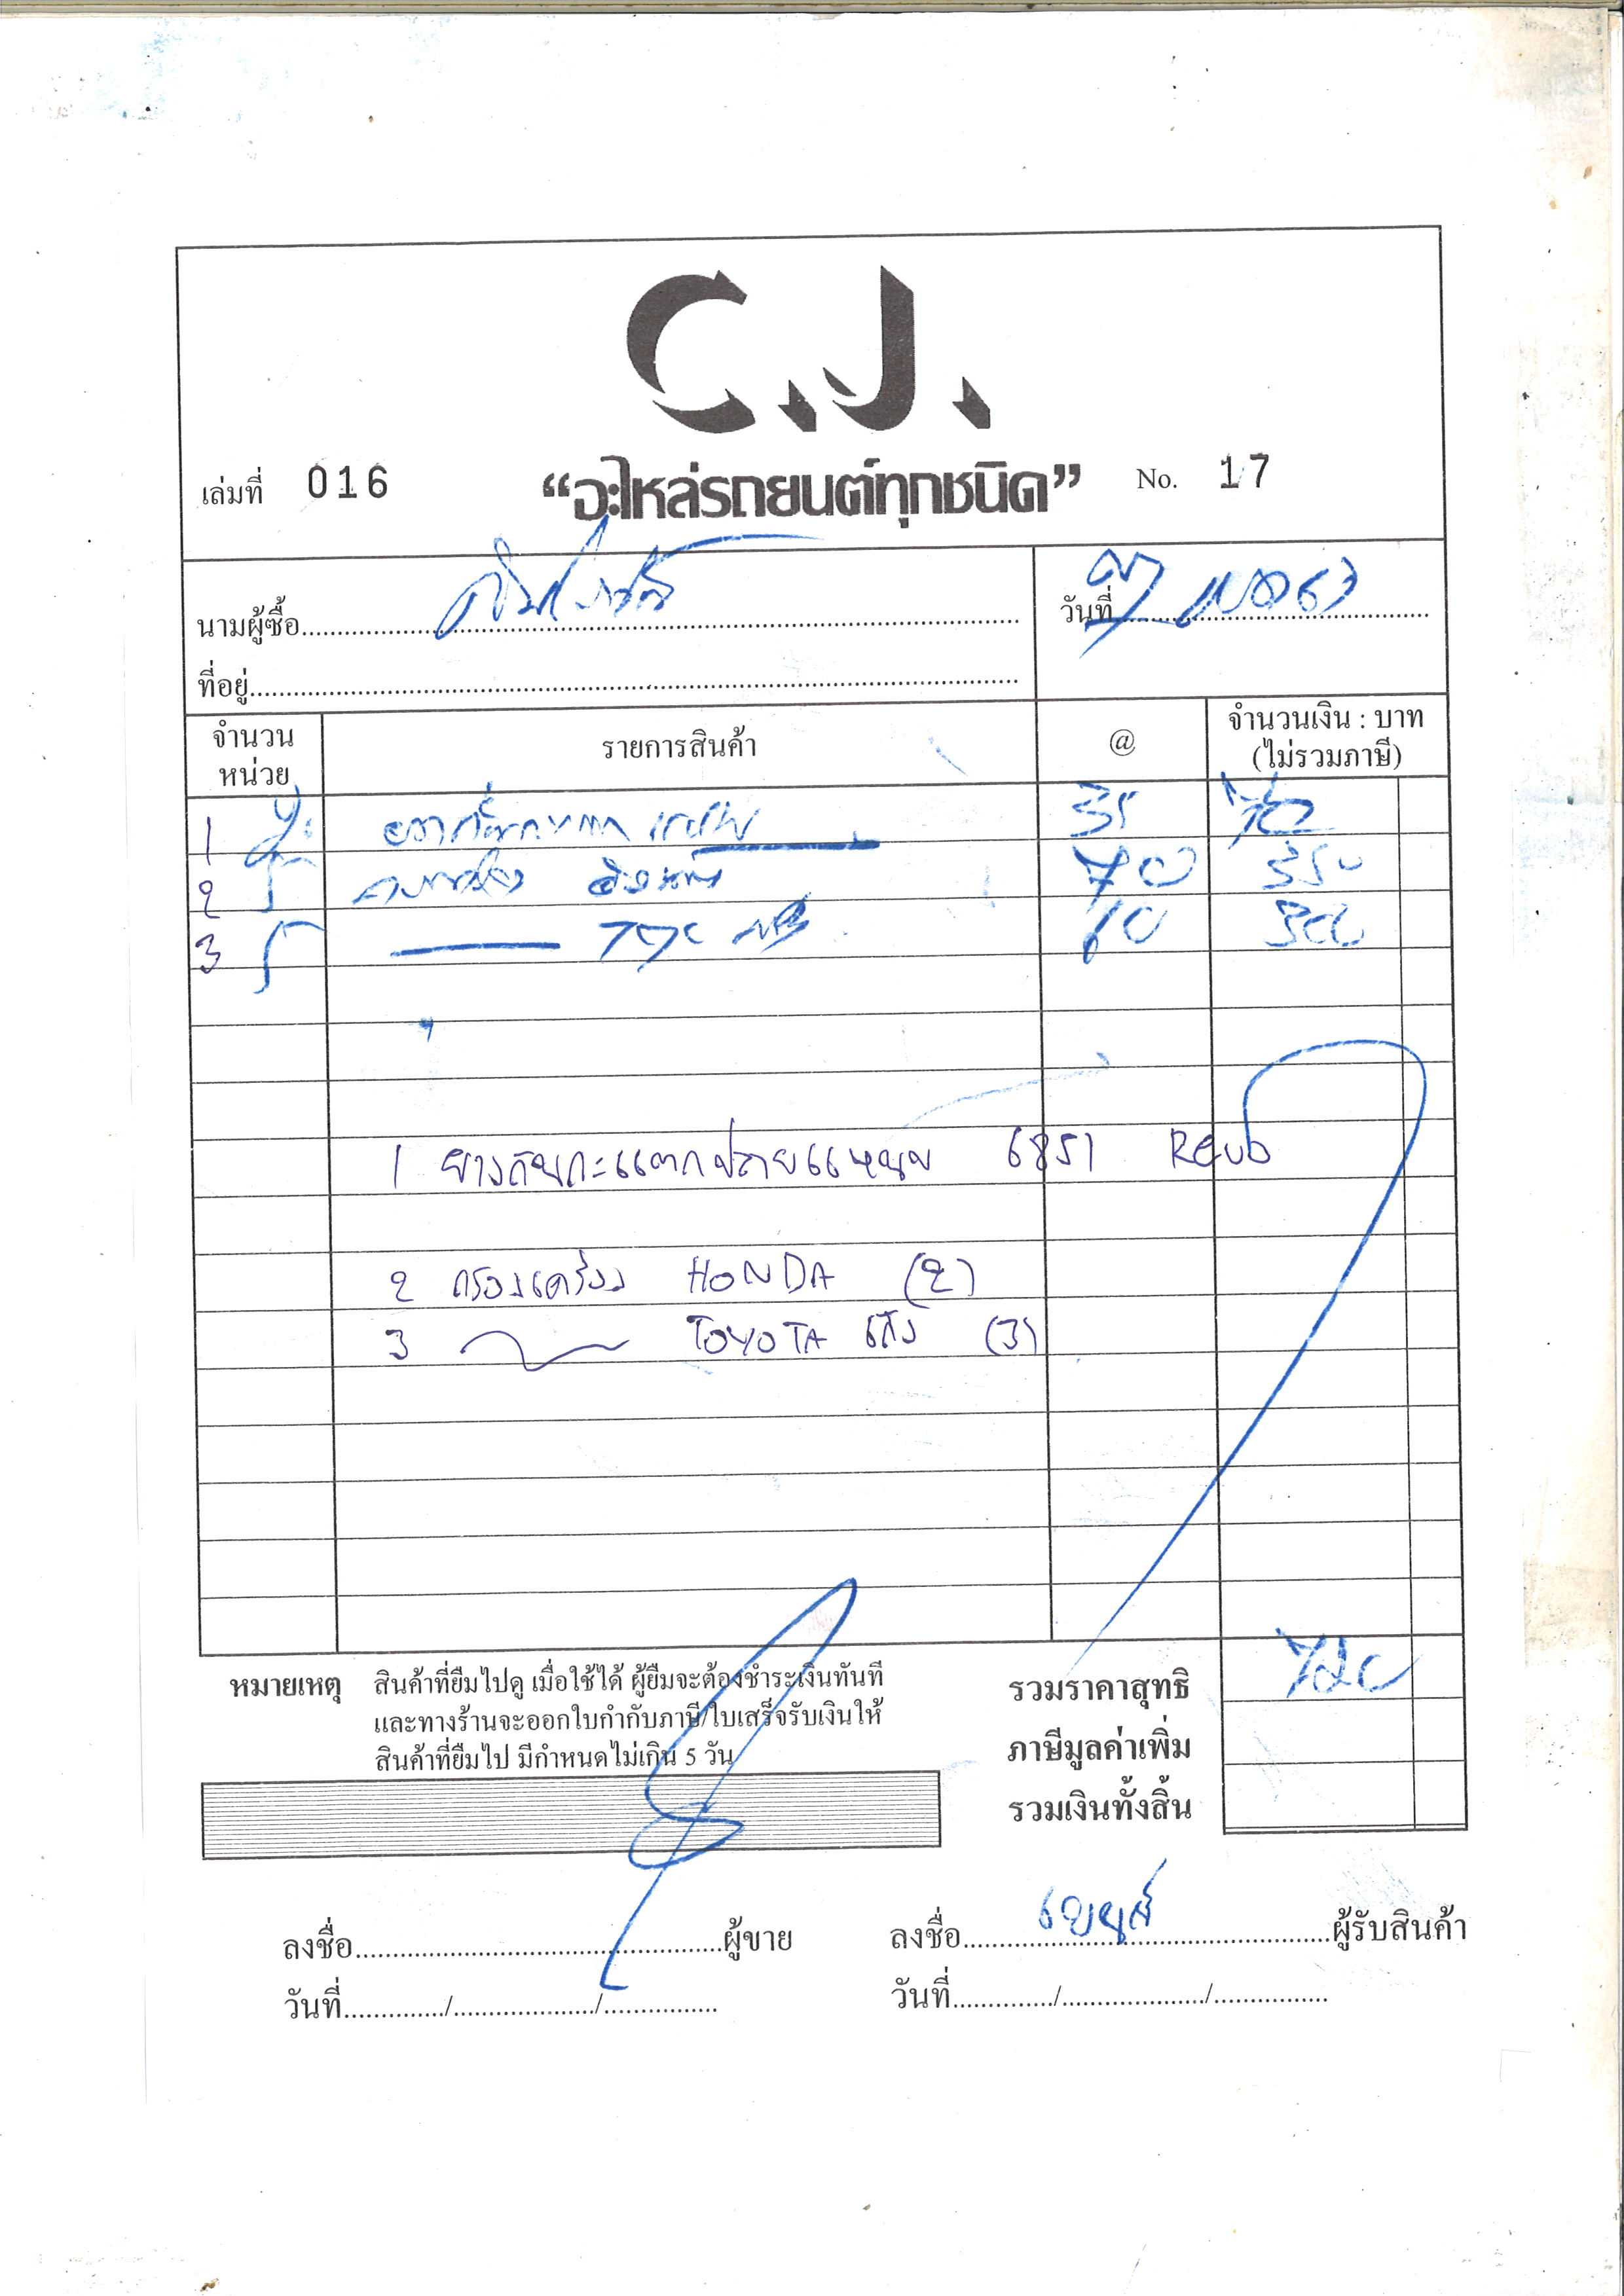 C.J.
เล่มที่ 016 “อะไหล่รถยนต์ทุกชนิด” No. 17
นามผู้ซื้อ
วันที่
ที่อยู่
จำนวน หน่วย รายการสินค้า @ จำนวนเงิน : บาท (ไม่รวมภาษี)
1 35 70
2 5 70 350
3 5 60 300
1 ยางกันกะแตกปลายแหนบ 6851 Revo
2 กรองเครื่อง HONDA (2)
3 TOYOTA เก๋ง (3)
หมายเหตุ สินค้าที่ยืมไปดู เมื่อใช้ได้ ผู้ยืมจะต้องชำระเงินทันที
และทางร้านจะออกใบกำกับภาษี/ใบเสร็จรับเงินให้
สินค้าที่ยืมไป มีกำหนดไม่เกิน 5 วัน
รวมราคาสุทธิ 720
ภาษีมูลค่าเพิ่ม
รวมเงินทั้งสิ้น
ลงชื่อ ผู้ขาย
ลงชื่อ ผู้รับสินค้า
วันที่ / /
วันที่ / /